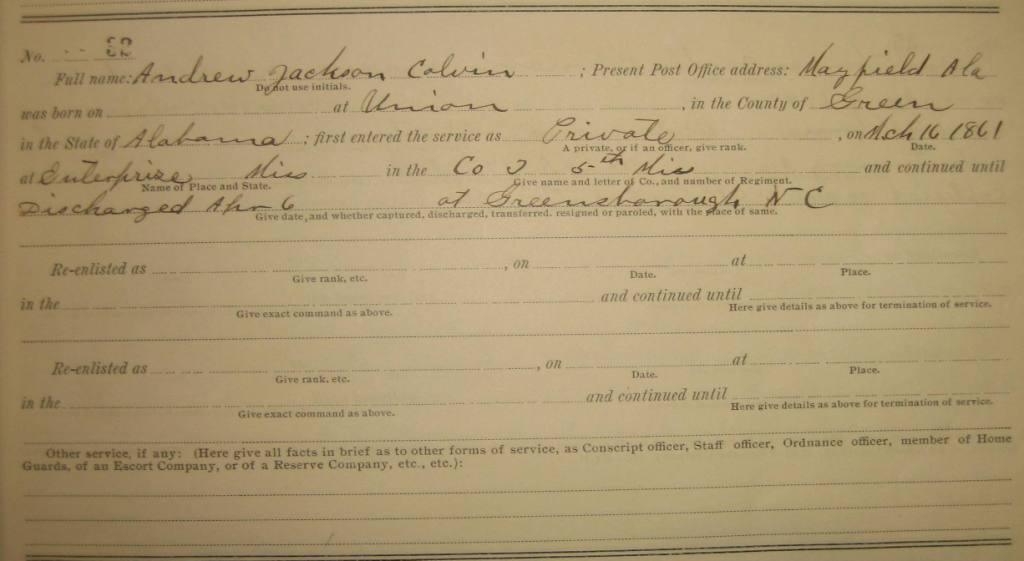 No. 82
Full name: Andrew Jackson Colvin ; Present Post Office address: Mayfield Ala
Do not use initials.
was born on at Union , in the County of Green
in the State of Alabama ; first entered the service as Private , on Mch 16 1861
A private, or if an officer, give rank. Date.
at Enterprize Miss in the Co I 5th Miss and continued until
Name of Place and State. Give name and letter of Co., and number of Regiment.
Discharged Apr 6 at Greensborough N C
Give date, and whether captured, discharged, transferred. resigned or paroled, with the place of same.
Re-enlisted as , on at
Give rank, etc. Date. Place.
in the and continued until
Give exact command as above. Here give details as above for termination of service.
Re-enlisted as , on at
Give rank, etc. Date. Place.
in the and continued until
Give exact command as above. Here give details as above for termination of service.
Other service, if any: (Here give all facts in brief as to other forms of service, as Conscript officer, Staff officer, Ordnance officer, member of Home
Guards, of an Escort Company, or of a Reserve Company, etc., etc.):